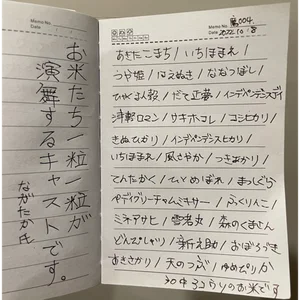 お米たち一粒一粒が
演舞するキャストです。
ながたか氏
Memo No.
Date
Memo No. 004
Date 2022.10.8
あきたこまち/いちほまれ/
つや姫/はえぬき/ななつぼし/
ひゃくまん穀/だて正夢/インディペンデンスデイ
津軽ロマン/サキホコレ/コシヒカリ/
きぬひかり/インディペンスヒカリ/
いちほまれ/風さやか/つきあかり/
てんたかく/ひとめぼれ/まっしぐら
ベイブリーチャムミキサー/ふくりんこ/
ミネアサヒ/雪若丸/森のくまさん
どんぴしゃり/新之助/おぼろづき
あきさかり/天のつぶ/ゆめぴりか
30中32ウリのお米です